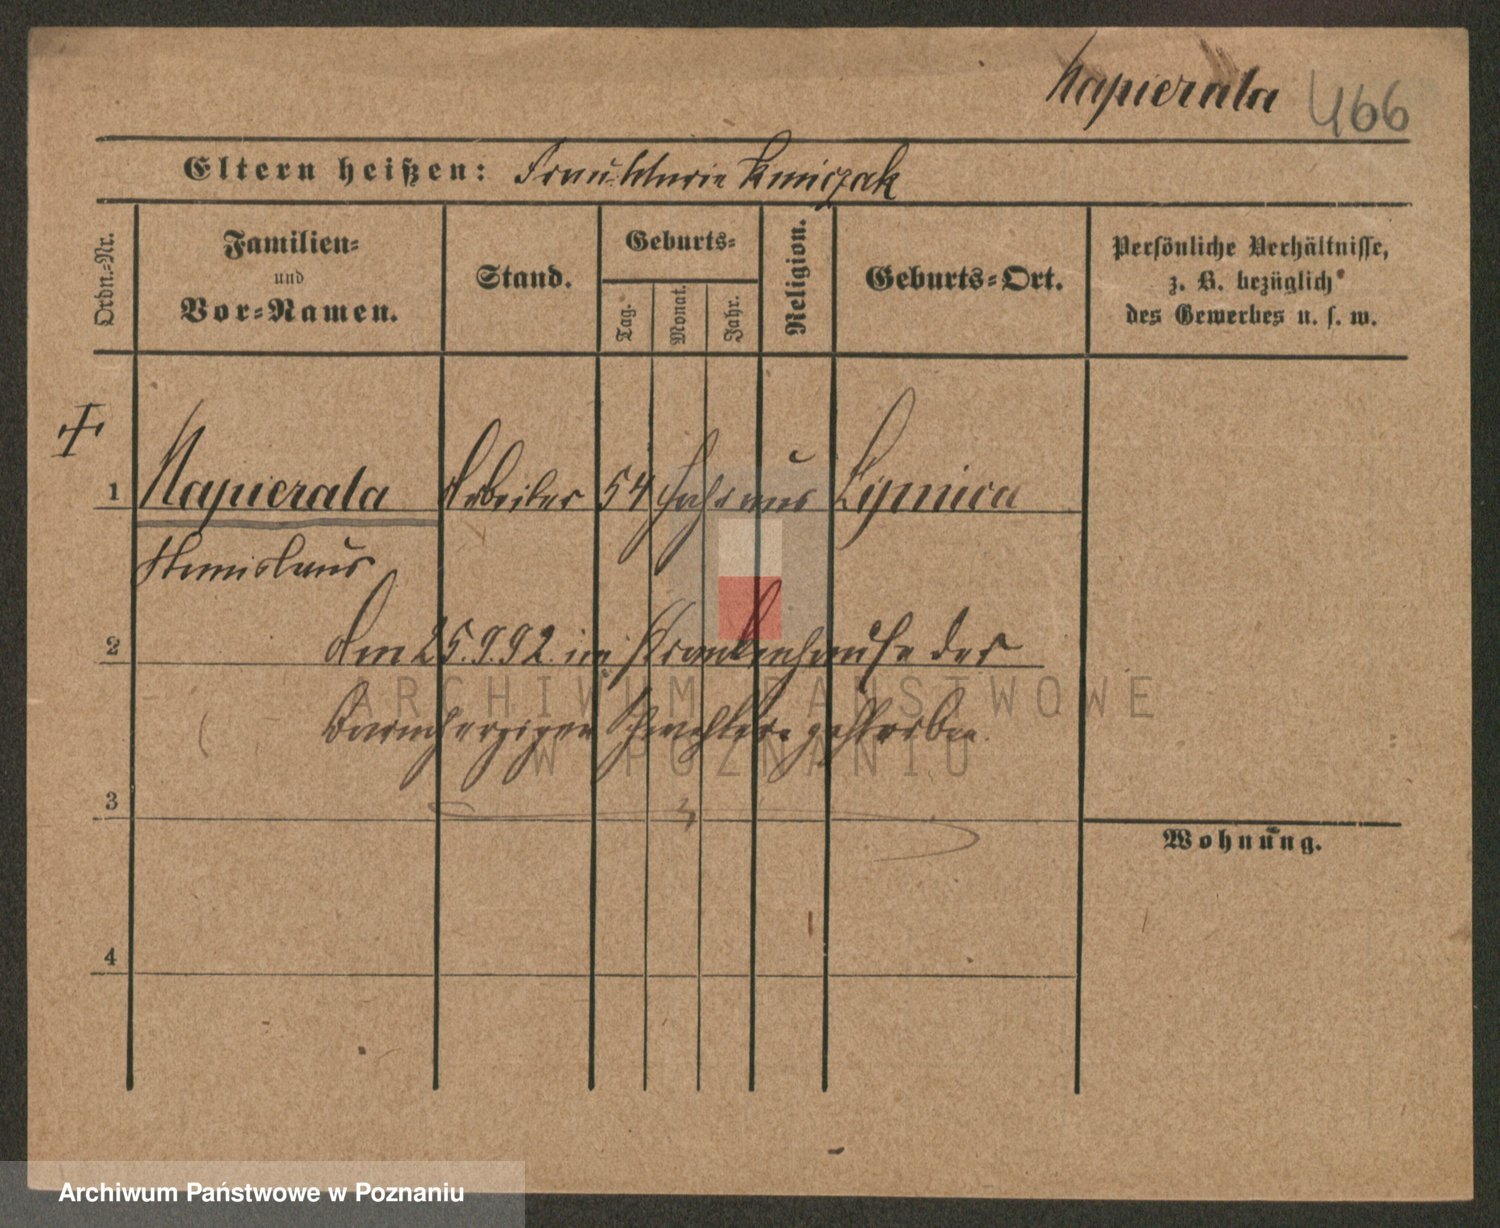 Napierala 466
Eltern heißen: Frau: Marie Kmiczak
Ordn.-Nr.
Familien-
und
Vor-Namen.
Stand.
Geburts-
Tag.
Monat.
Jahr.
Religion.
Geburts-Ort.
Persönliche Verhältnisse,
z. B. bezüglich
des Gewerbes u. s. w.
1 Napierala Arbeiter 54 Jahr aus Lipnica
Stanislaus
2 Am 25.9.92. im Krankenhause der
Barmherzigen Schwestern gestorben.
3
Wohnung.
4
ARCHIWUM PAŃSTWOWE
W POZNANIU
Archiwum Państwowe w Poznaniu